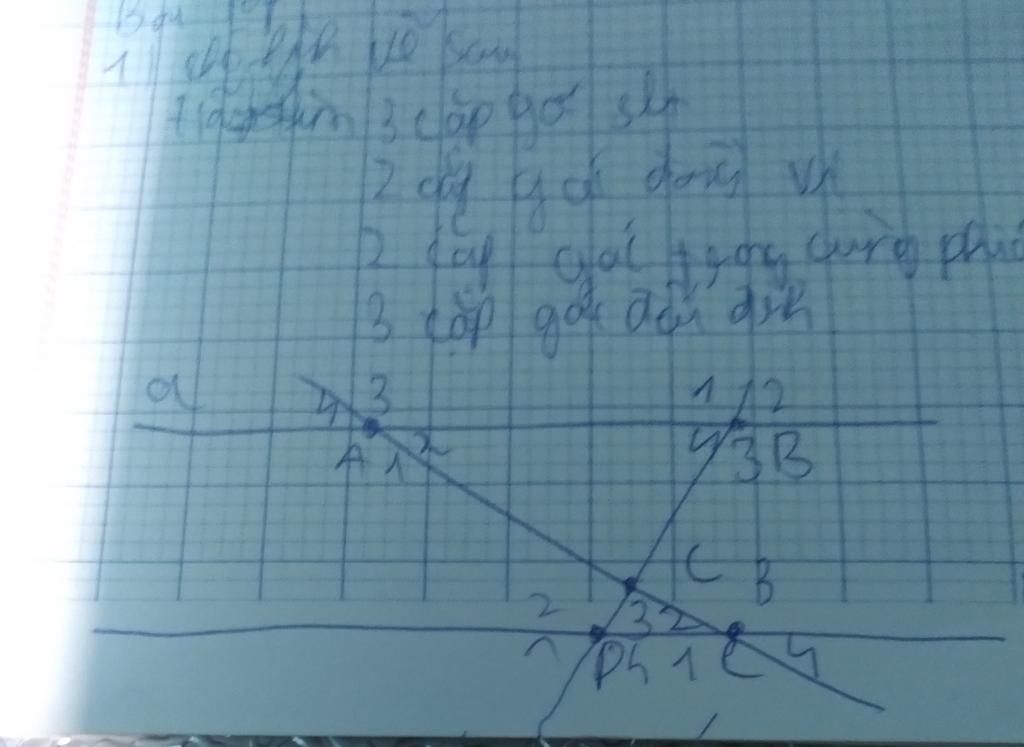 1 cho hình vẽ sau
tìm 3 cặp góc slt
2 cặp góc đồng vị
2 cặp góc trong cùng phía
3 cặp góc đối đỉnh
a 4 3 1 2
A 1 2 4 3 B
C B
2 3 2
1 D 4 1 C 4